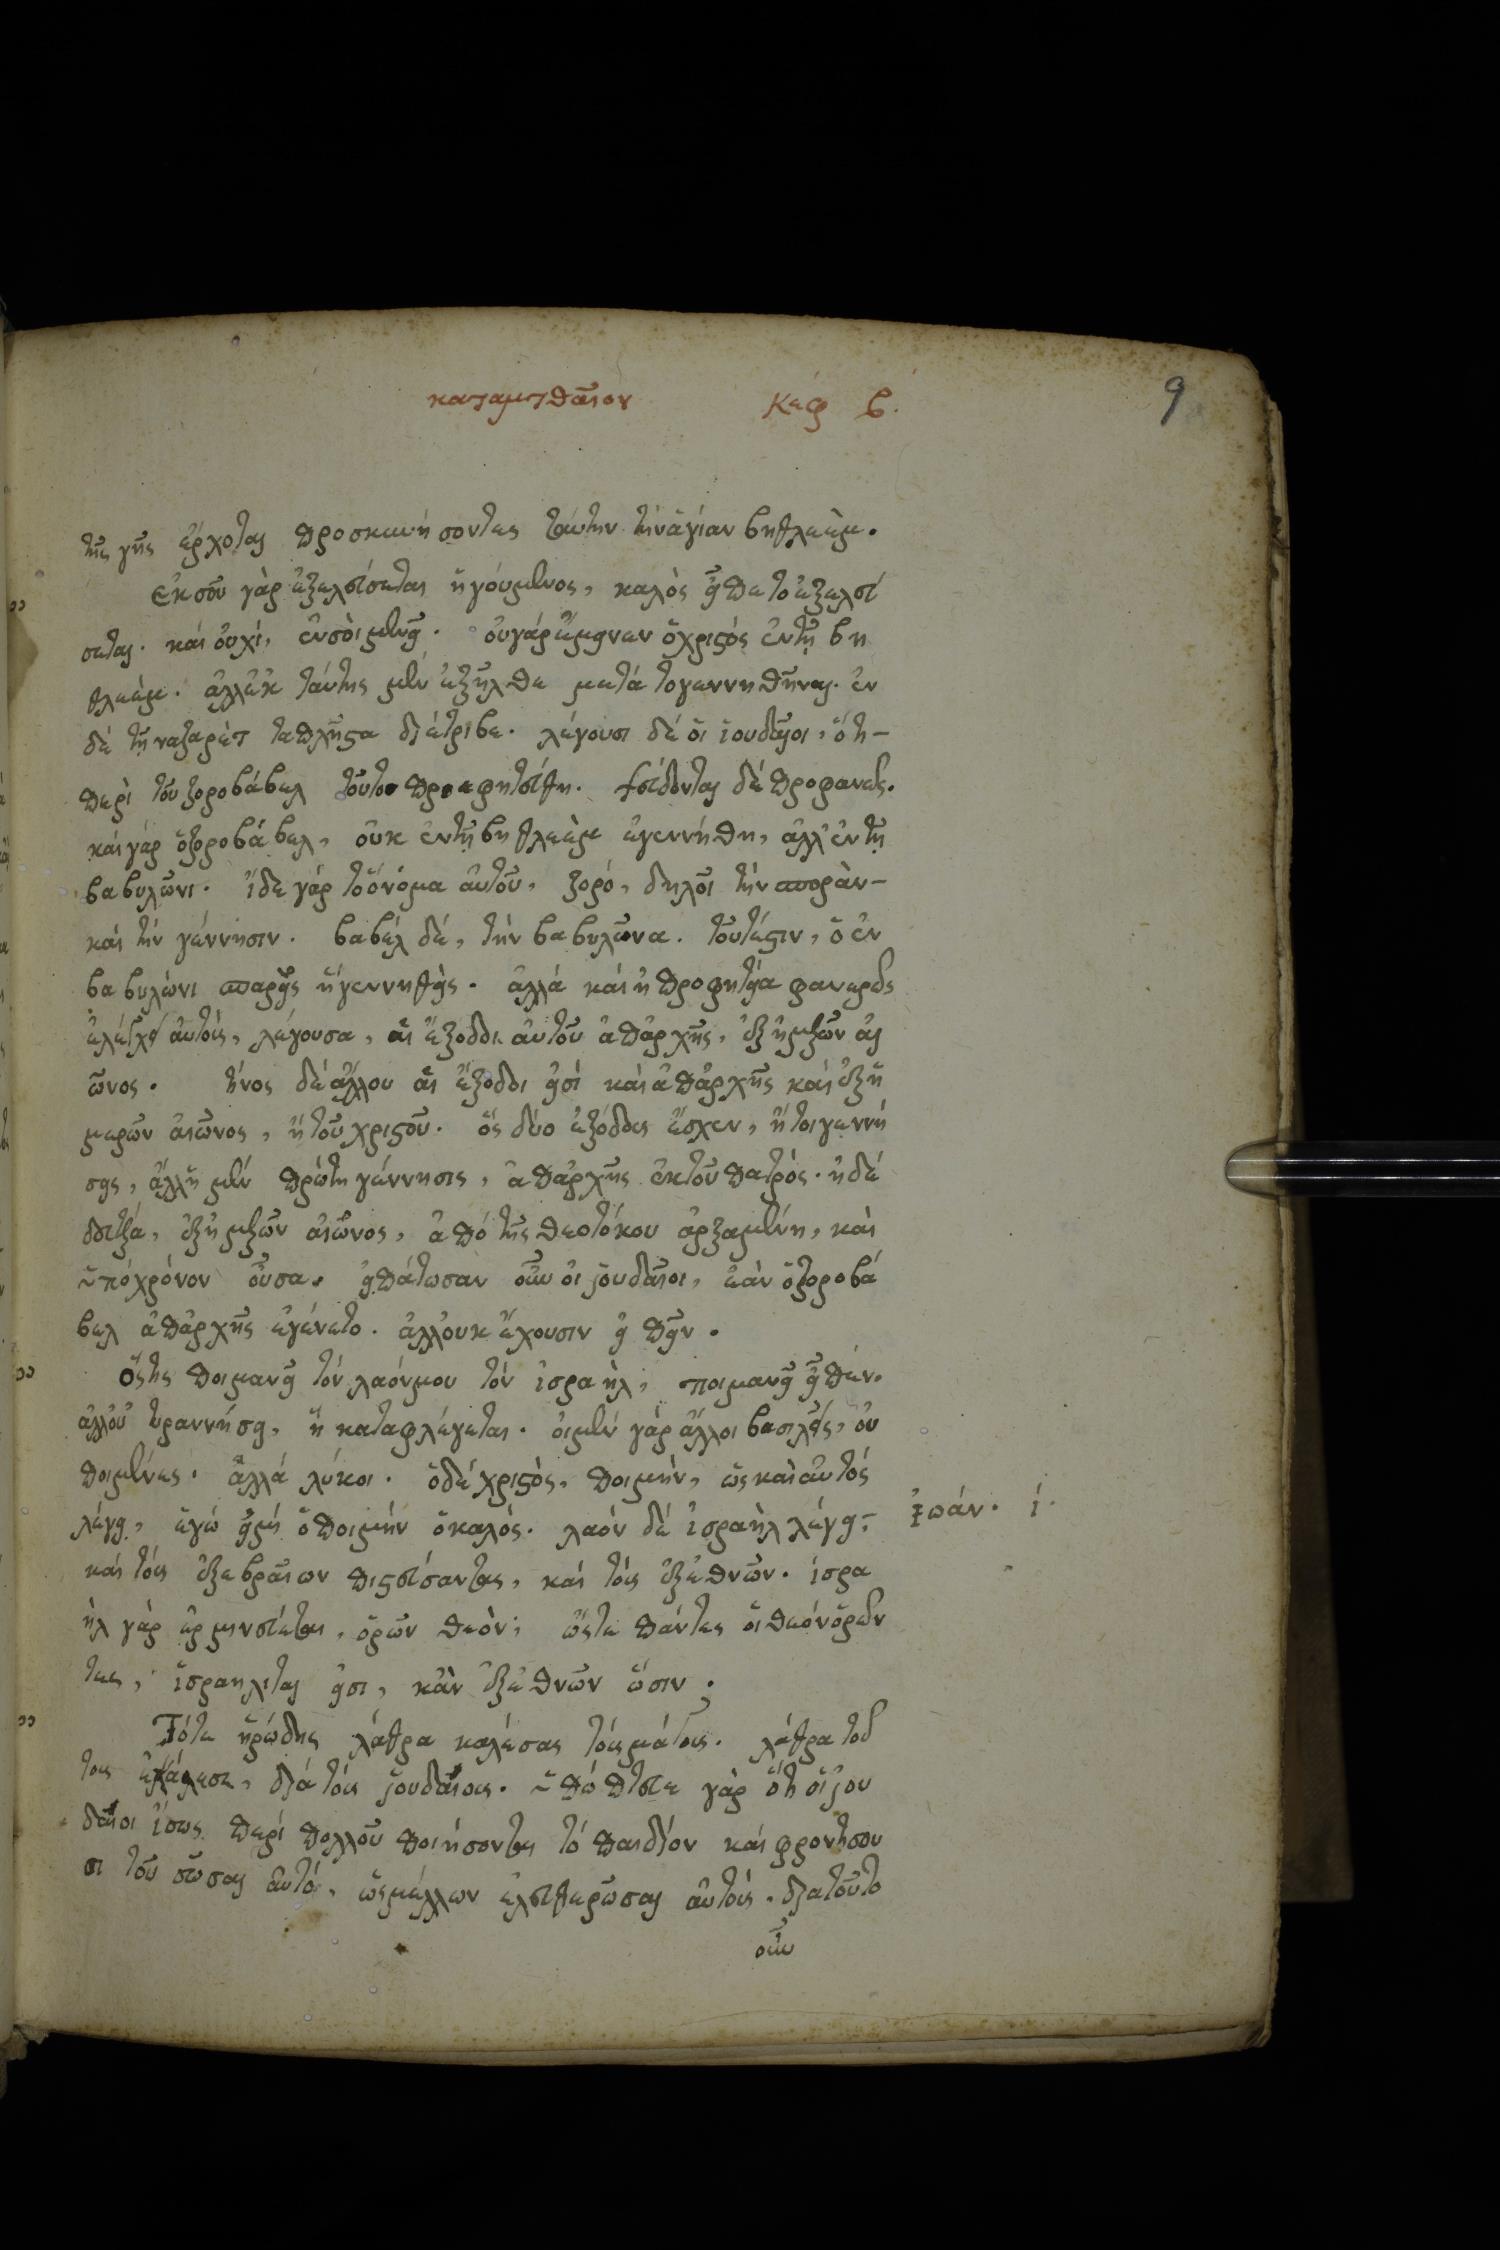 καταματθαῖον Κεφ β. 9
τῆς γῆς ἔρχονται προσκυνήσοντες ταύτην τὴν ἁγίαν βηθλεέμ.
ἐκ σοῦ γὰρ ἐξελεύσεται ἡγούμενος, καλὸς εἶπε τὸ ἐξελεύ
σεται. καὶ οὐχὶ, ἐν σοὶ μενεῖ. οὐ γὰρ ἔμεινεν ὁ χριστὸς ἐν τῇ βη
θλεέμ. ἀλλ' ἐκ ταύτης μὲν ἐξῆλθε μετὰ τὸ γεννηθῆναι. ἐν
δὲ τῇ ναζαρὲτ τὰ πλεῖστα διέτριβε. λέγουσι δὲ οἱ ἰουδαῖοι, ὅτι
περὶ τοῦ ζοροβάβελ τοῦτο προεφητεύθη. ψεύδονται δὲ προφανῶς.
καὶ γὰρ ὁ ζοροβάβελ, οὐκ ἐν τῇ βηθλεὲμ ἐγεννήθη, ἀλλ' ἐν τῇ
βαβυλῶνι. ἴδε γὰρ τὸ ὄνομα αὐτοῦ, ζορό, δηλοῖ τὴν σπορὰν
καὶ τὴν γέννησιν. βαβέλ δέ, τὴν βαβυλῶνα. τουτέστιν, ὁ ἐν
βαβυλῶνι σπαρεὶς ἢ γεννηθείς. ἀλλὰ καὶ ἡ προφητεία φανερῶς
ἐλέγχει αὐτοὺς, λέγουσα, αἱ ἔξοδοι αὐτοῦ ἀπ' ἀρχῆς, ἐξ ἡμερῶν αἰ
ῶνος. τίνος δὲ ἄλλου αἱ ἔξοδοι εἰσὶ καὶ ἀπ' ἀρχῆς καὶ ἐξ ἡ
μερῶν αἰῶνος, ἢ τοῦ χριστοῦ. ὃς δύο ἐξόδους ἔσχεν, ἤτοι γεννή
σεις, ἀλλ' ἡ μὲν πρώτη γέννησις, ἀπ' ἀρχῆς ἐκ τοῦ πατρός. ἡ δὲ
δευτέρα, ἐξ ἡμερῶν αἰῶνος, ἀπὸ τῆς θεοτόκου ἀρξαμένη, καὶ
ὑπὸ χρόνον οὖσα. εἰπάτωσαν οὖν οἱ ἰουδαῖοι, ἐὰν ὁ ζοροβά
βελ ἀπ' ἀρχῆς ἐγένετο. ἀλλ' οὐκ ἔχουσιν εἰπεῖν.
Ὅστις ποιμανεῖ τὸν λαόν μου τὸν ἰσραὴλ, ποιμανεῖ εἶπεν.
ἀλλ' οὐ τυραννήσει, ἢ καταφλέγεται. οἱ μὲν γὰρ ἄλλοι βασιλεῖς, οὐ
ποιμένες. ἀλλὰ λύκοι. ὁ δὲ χριστὸς, ποιμὴν, ὡς καὶ αὐτὸς
λέγει, ἐγώ εἰμι ὁ ποιμὴν ὁ καλός. λαὸν δὲ ἰσραὴλ λέγει, Ἰωάν. ί.
καὶ τοὺς ἐξ ἑβραίων πιστεύσαντας, καὶ τοὺς ἐξ ἐθνῶν. ἰσρα
ὴλ γὰρ ἑρμηνεύεται, ὁρῶν θεὸν; ὥστε πάντες οἱ θεὸν ὁρῶν
τες, ἰσραηλῖται εἰσι, κἂν ἐξ ἐθνῶν ὦσιν.
Τότε ἡρώδης λάθρα καλέσας τοὺς μάγους. λάθρα τού
τους ἐκάλεσε, διὰ τοὺς ἰουδαίους. ὑπόπτευε γὰρ ὅτι οἱ ἰου
δαῖοι ἴσως περὶ πολλοῦ ποιήσονται τὸ παιδίον καὶ φροντίσου
σι τοῦ σῶσαι αὐτό, ὡς μέλλων ἐλευθερῶσαι αὐτούς. διὰ τοῦτο
οὖν